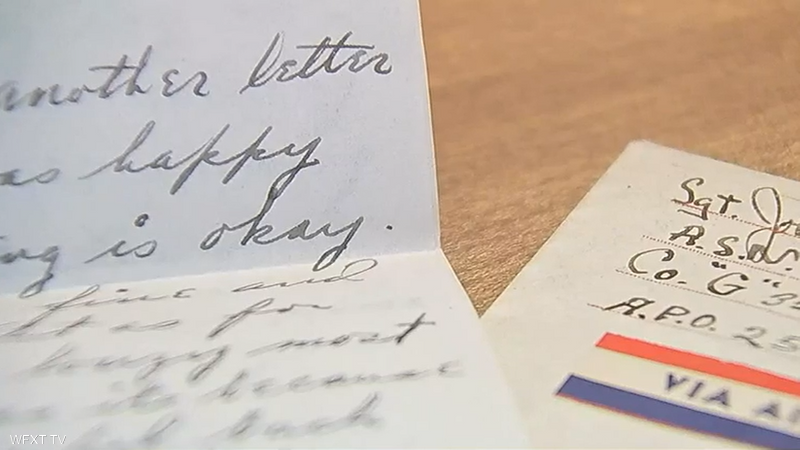 another letter
as happy
ing is okay.
fine and
as for
lousy most
because
back
Sgt.
A.S.N.
Co. "G"
A.P.O. 25
VIA A
WFXT TV